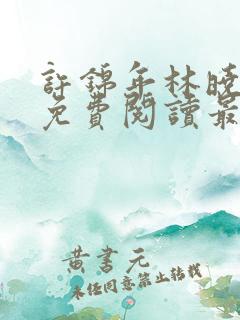 許錦年林曉
免費閱讀最
黃書元
未经同意禁止转载